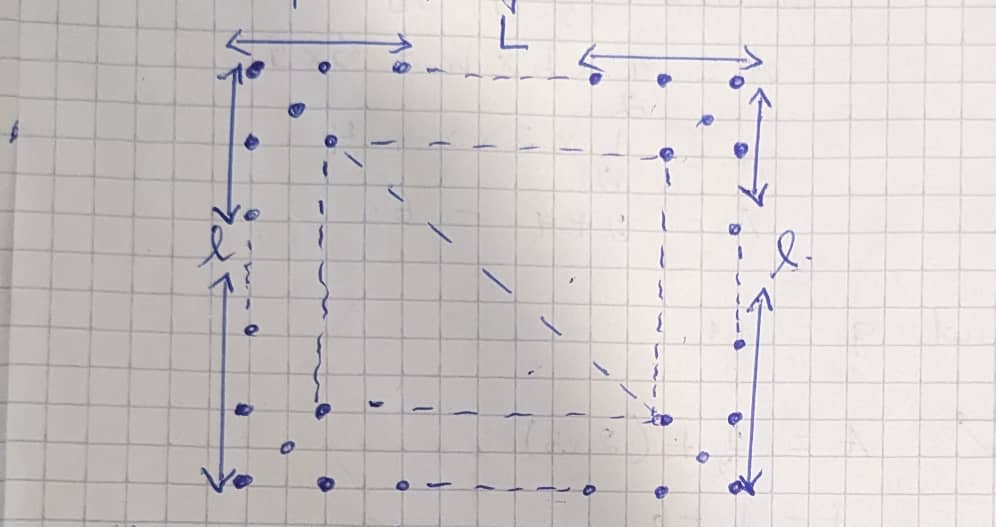 L
l
l